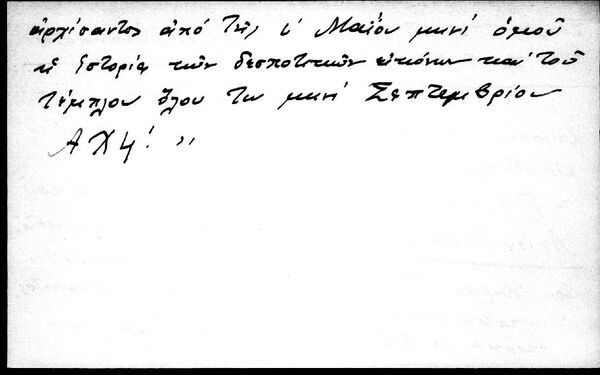 ἀρχίσαντος ἀπό τῆς ι΄ Μαΐου μηνί ὁμοῦ
ἡ ἱστορία τῶν δεσποτικῶν εἰκόνων καί τοῦ
τέμπλου ὅλου τω μηνί Σεπτεμβρίου
ΑΧ4! ,,